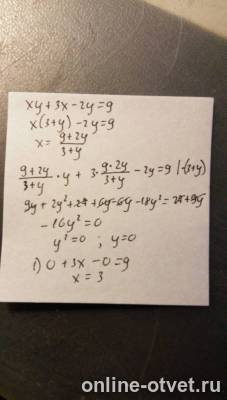 xy + 3x - 2y = 9
x(3+y) - 2y = 9
x = (9+2y)/(3+y)
(9+2y)/(3+y) · y + 3 · (9·2y)/(3+y) - 2y = 9 | ·(3+y)
9y + 2y² + 27 + 6y - 6y - 18y² = 27 + 9y
-16y² = 0
y² = 0 ; y = 0
1) 0 + 3x - 0 = 9
x = 3
online-otvet.ru